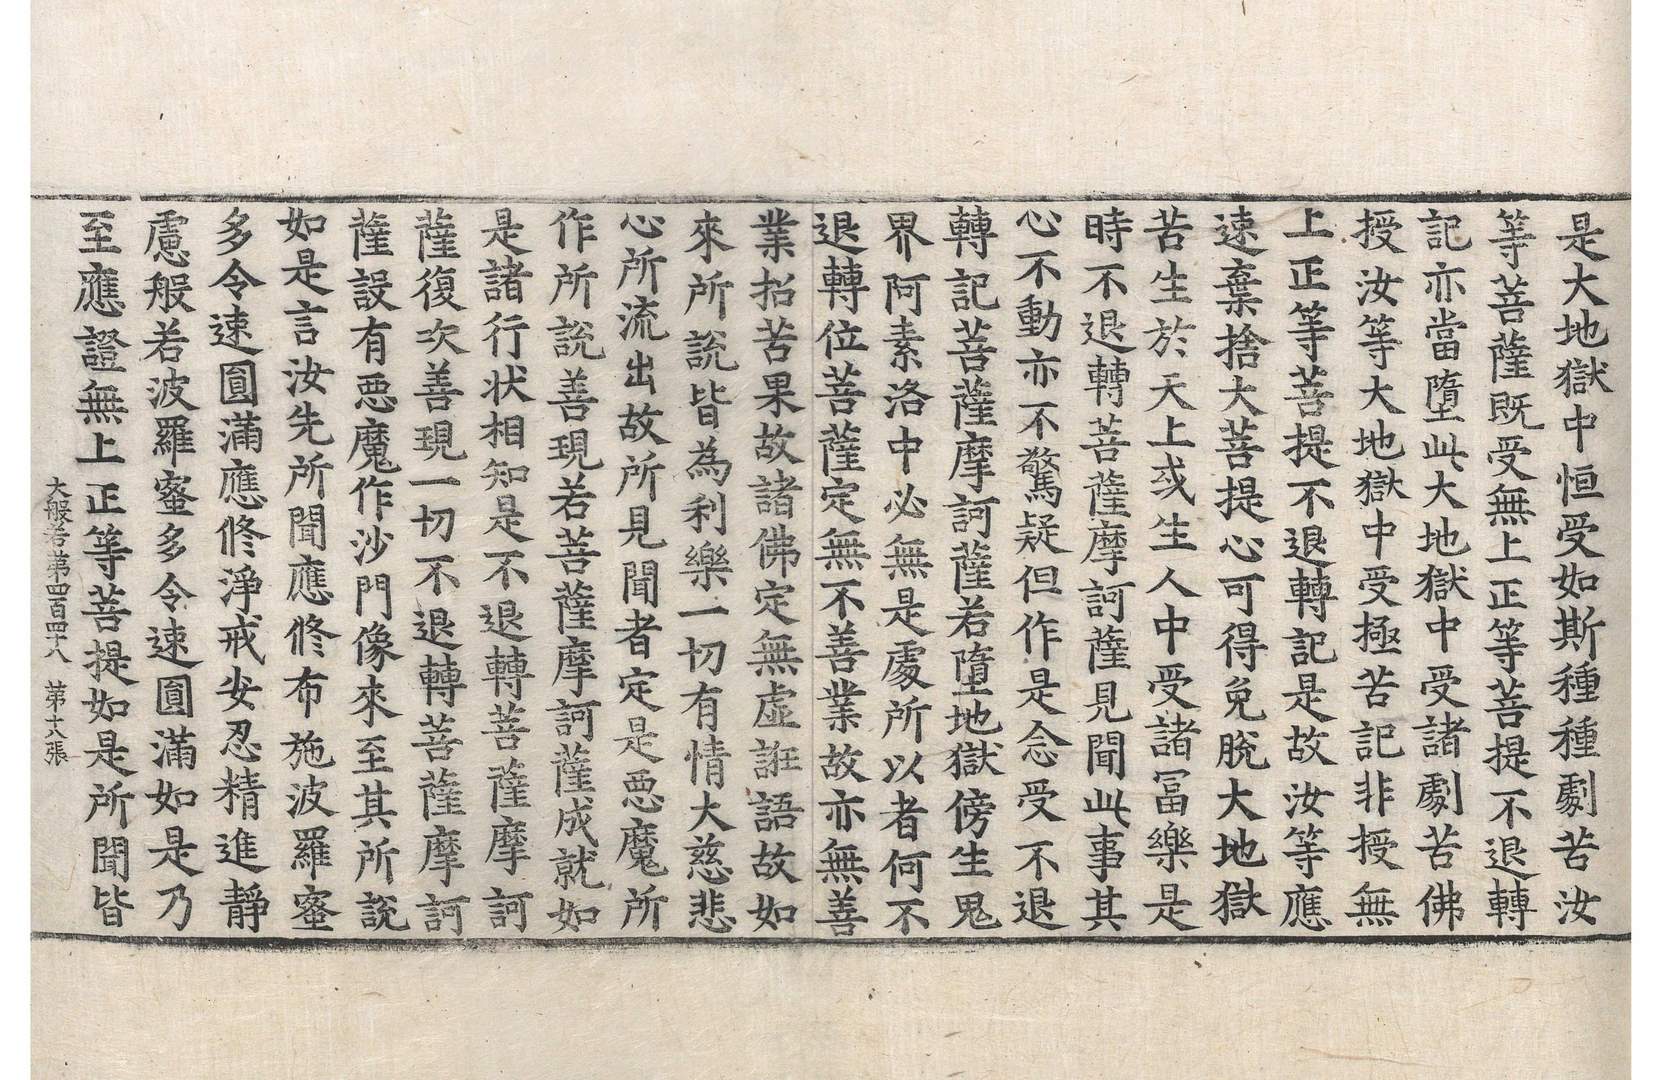 是大地獄中恒受如斯種種劇苦汝
等菩薩既受無上正等菩提不退轉
記亦當墮此大地獄中受諸劇苦佛
授汝等大地獄中受極苦記非授無
上正等菩提不退轉記是故汝等應
速棄捨大菩提心可得免脫大地獄
苦生於天上或生人中受諸冨樂是
時不退轉菩薩摩訶薩見聞此事其
心不動亦不驚疑但作是念受不退
轉記菩薩摩訶薩若墮地獄傍生鬼
界阿素洛中必無是處所以者何不
退轉位菩薩定無不善業故亦無善
業招苦果故諸佛定無虛誑語故如
來所說皆為利樂一切有情大慈悲
心所流出故所見聞者定是惡魔所
作所說善現若菩薩摩訶薩成就如
是諸行狀相知是不退轉菩薩摩訶
薩復次善現一切不退轉菩薩摩訶
薩設有惡魔作沙門像來至其所說
如是言汝先所聞應修布施波羅蜜
多令速圓滿應修淨戒安忍精進靜
慮般若波羅蜜多令速圓滿如是乃
至應證無上正等菩提如是所聞皆
大般若第四百四十八　第十六張